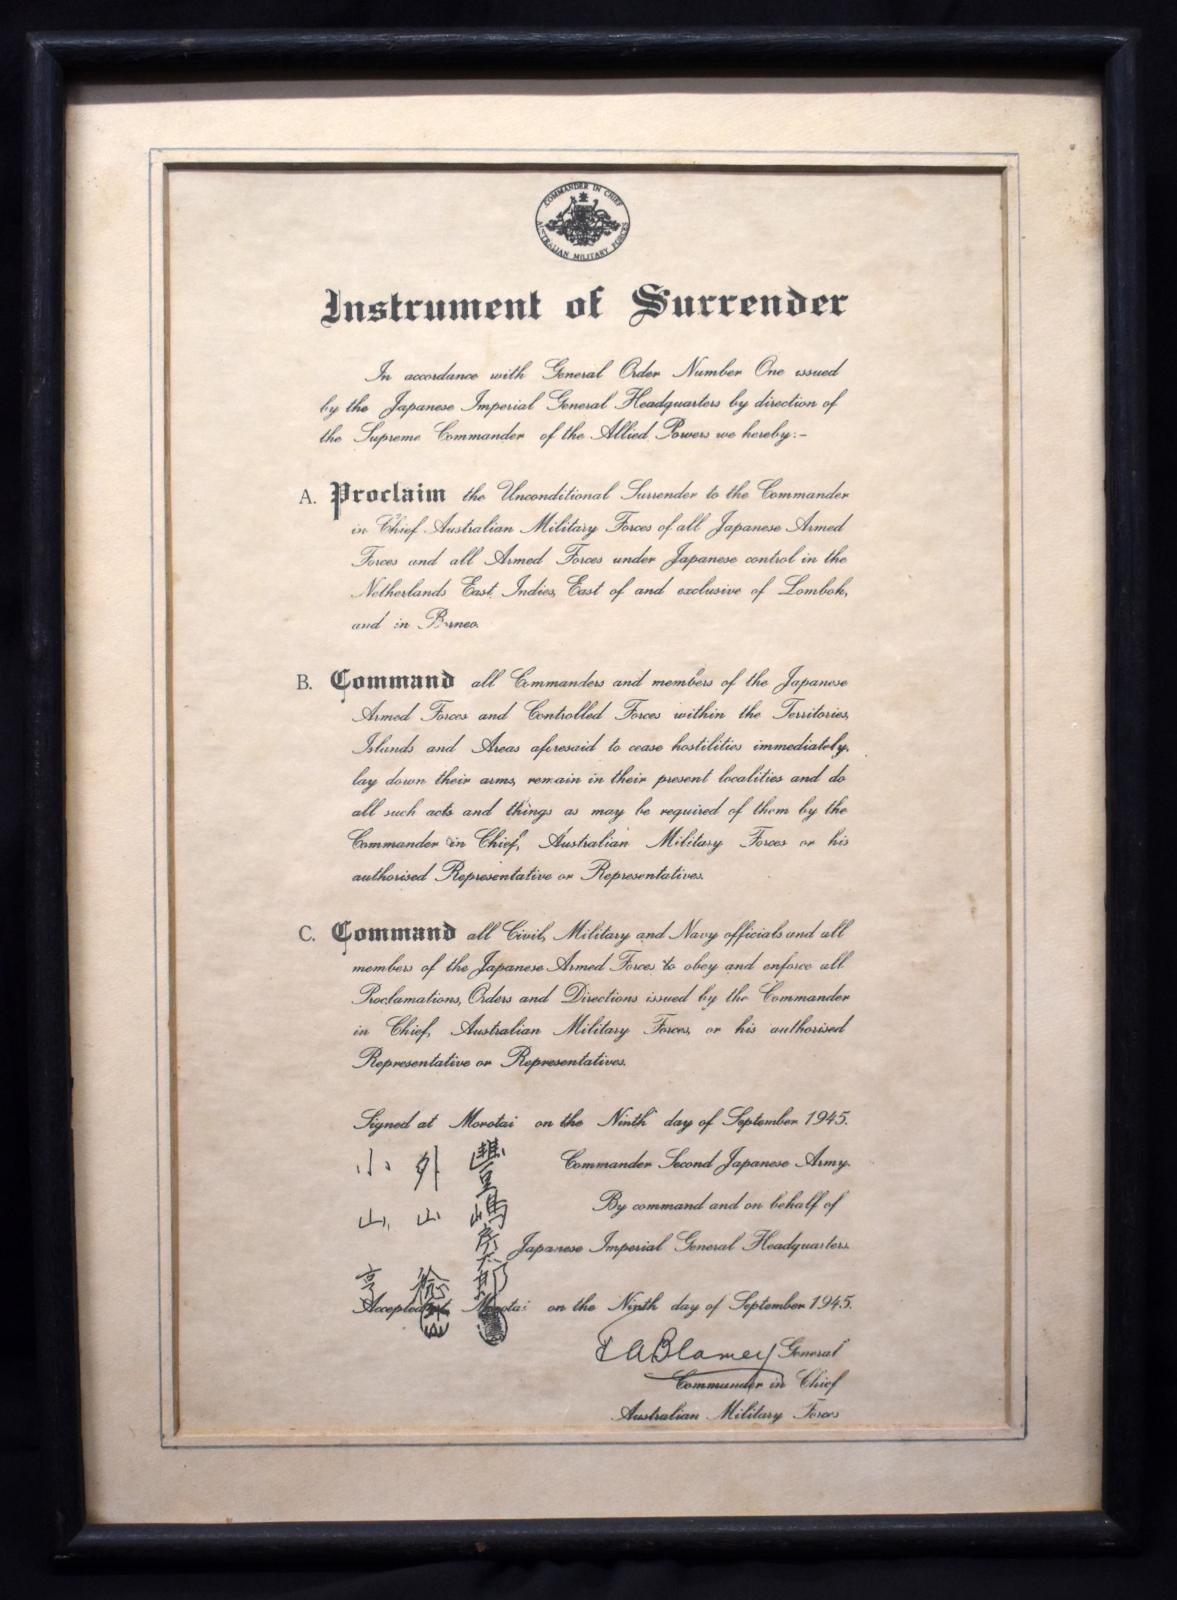 COMMANDER IN CHIEF
AUSTRALIAN MILITARY FORCES
Instrument of Surrender
In accordance with General Order Number One issued
by the Japanese Imperial General Headquarters by direction of
the Supreme Commander of the Allied Powers we hereby:-
A. Proclaim the Unconditional Surrender to the Commander
in Chief Australian Military Forces of all Japanese Armed
Forces and all Armed Forces under Japanese control in the
Netherlands East Indies, East of and exclusive of Lombok,
and in Borneo.
B. Command all Commanders and members of the Japanese
Armed Forces and Controlled Forces within the Territories,
Islands and Areas aforesaid to cease hostilities immediately,
lay down their arms, remain in their present localities and do
all such acts and things as may be required of them by the
Commander in Chief, Australian Military Forces or his
authorised Representative or Representatives.
C. Command all Civil, Military and Navy officials and all
members of the Japanese Armed Forces to obey and enforce all
Proclamations, Orders and Directions issued by the Commander
in Chief, Australian Military Forces, or his authorised
Representative or Representatives.
Signed at Morotai on the Ninth day of September 1945.
豊嶋房太郎
外山
小山亨
Commander Second Japanese Army.
By command and on behalf of
Japanese Imperial General Headquarters.
Accepted at Morotai on the Ninth day of September 1945.
T A Blamey General
Commander in Chief
Australian Military Forces